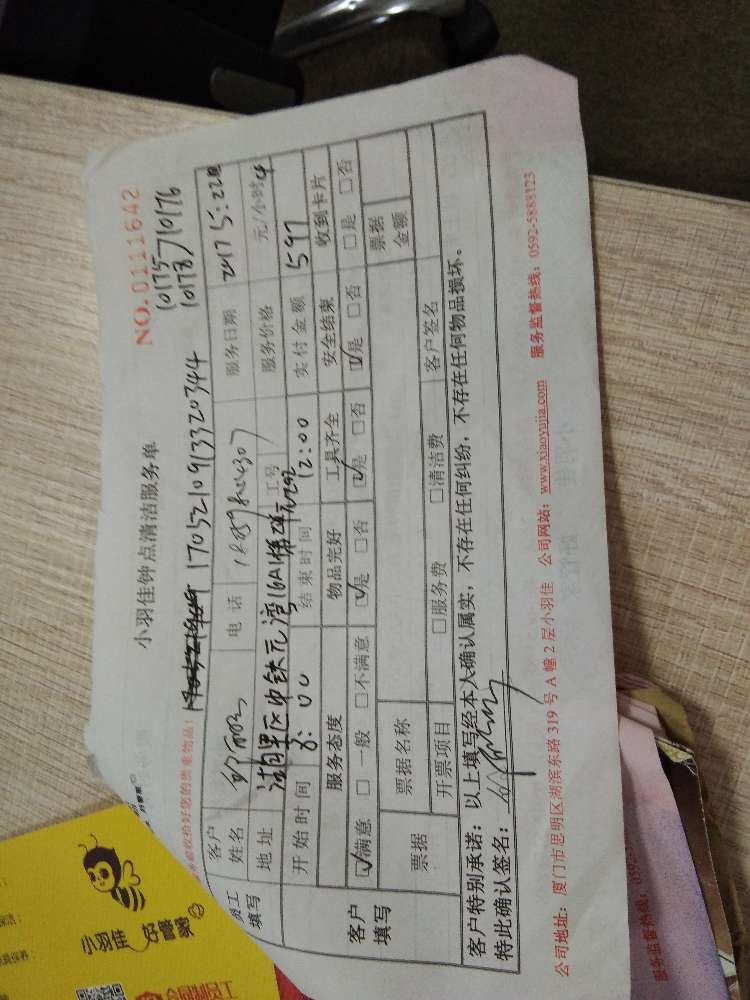 小羽佳钟点清洁服务单
NO.0111642
10175 10176
10178
收拾好您的贵重物品! 1705210913320344
员工填写
客户姓名 电话 服务日期 2017 5:22日
地址 湖里区中铁元湾16A1梯 工号 服务价格 元/小时
开始时间 8:00 结束时间 12:00 实付金额 597
客户填写
服务态度 物品完好 工具齐全 安全结束 收到卡片
☑满意 □一般 □不满意 ☑是 □否 ☑是 □否 ☑是 □否 □是 □否
票据 票据名称 票据金额
开票项目 □服务费 □清洁费 客户签名
客户特别承诺:以上填写经本人确认属实,不存在任何纠纷,不存在任何物品损坏。
特此确认签名:
公司地址:厦门市思明区湖滨东路319号A幢2层小羽佳 公司网站:www.xiaoyujia.com 服务监督热线:0592-5888123
服务监督热线:0592-5
小羽佳 好管家